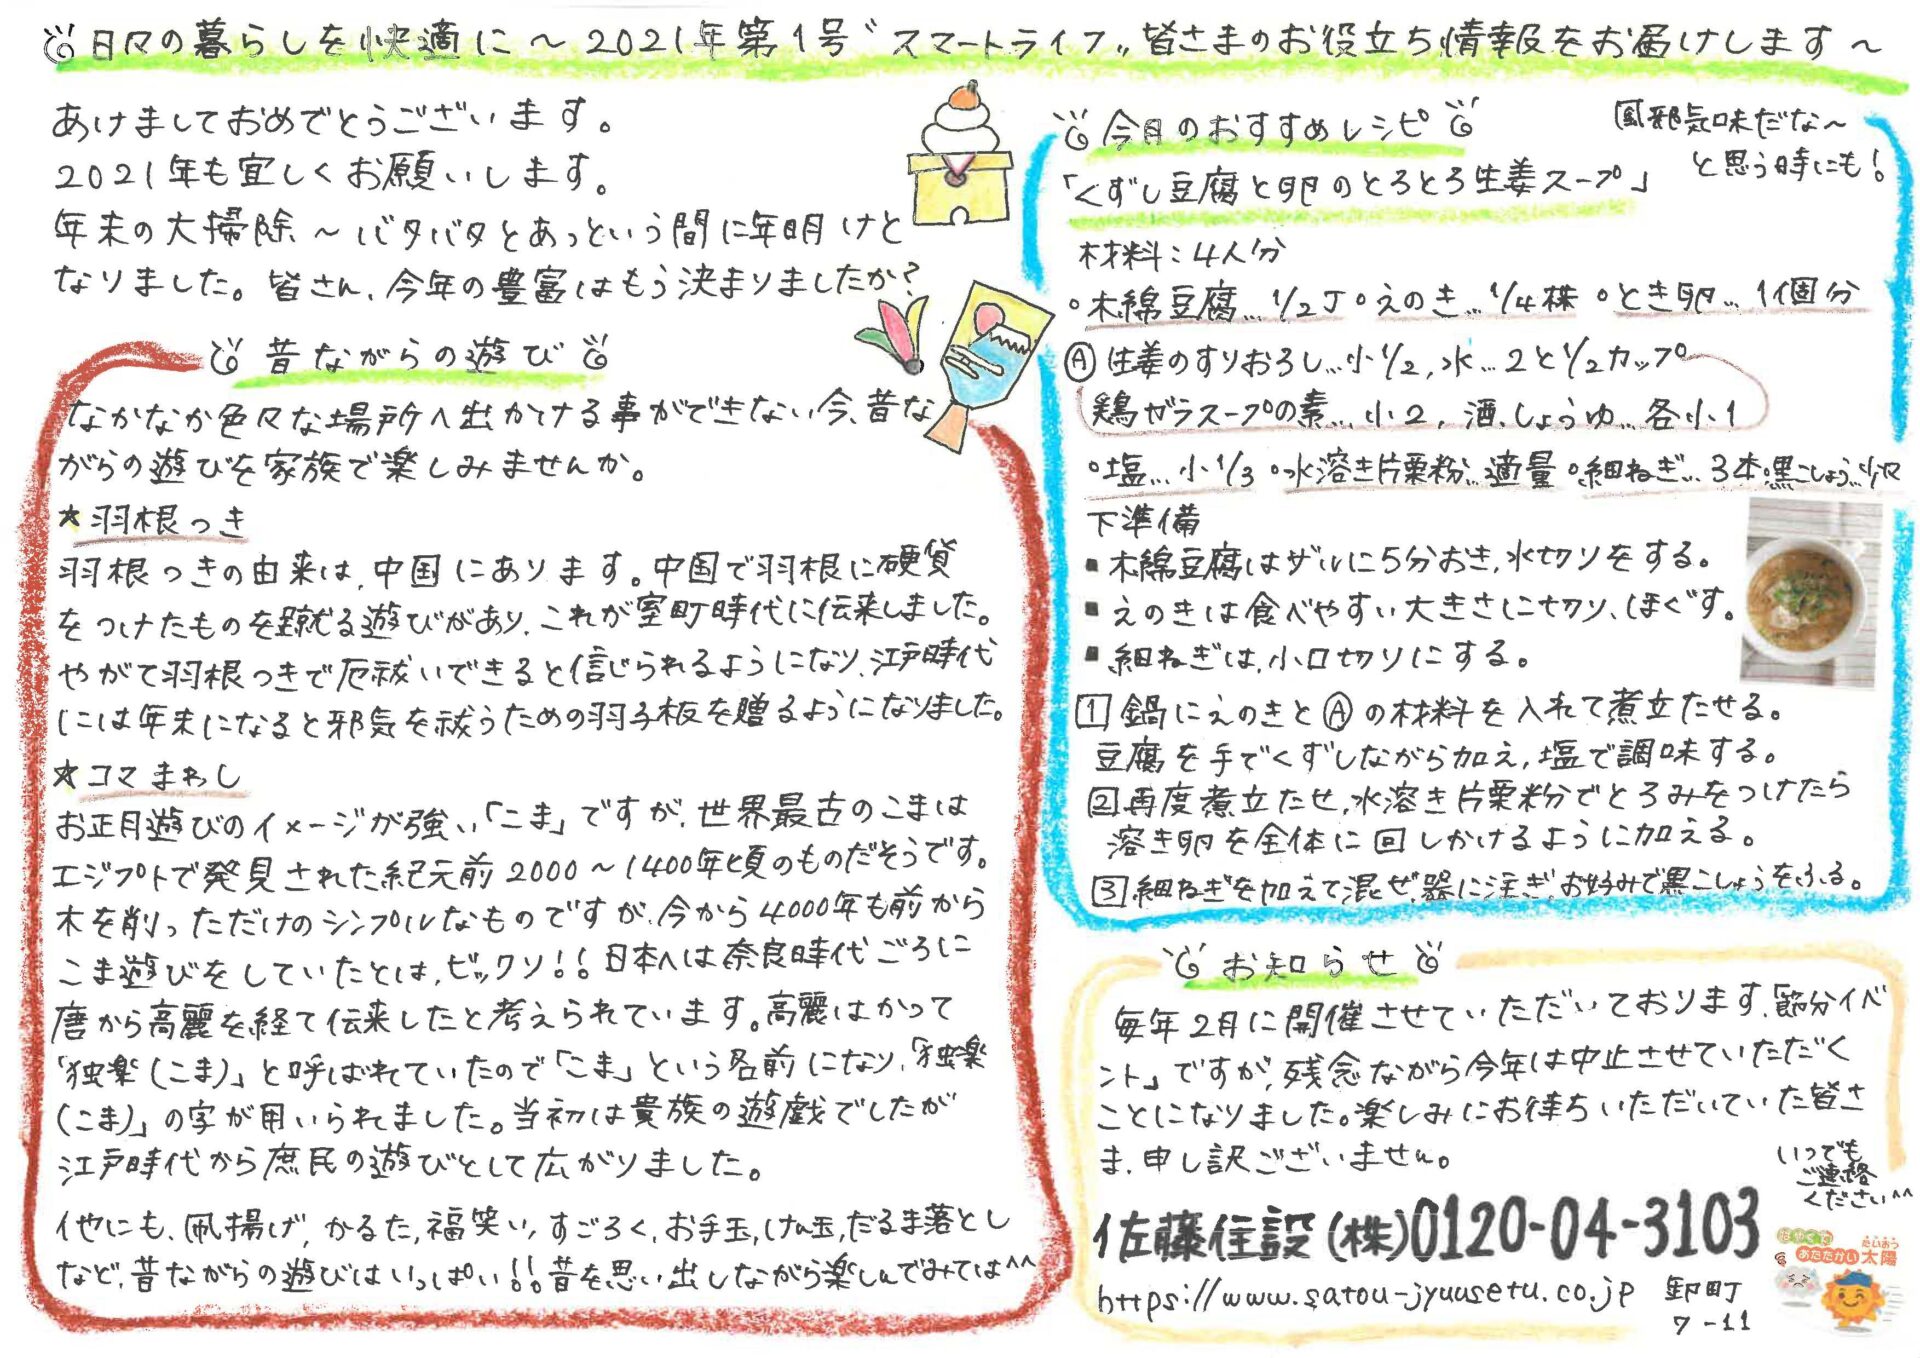 日々の暮らしを快適に～2021年第1号〝スマートライフ〟皆さまのお役立ち情報をお届けします～
あけましておめでとうございます。
2021年も宜しくお願いします。
年末の大掃除～バタバタとあっという間に年明けと
なりました。皆さん、今年の豊富はもう決まりましたか?
昔ながらの遊び
なかなか色々な場所へ出かける事ができない今、昔な
がらの遊びを家族で楽しみませんか。
★羽根つき
羽根つきの由来は、中国にあります。中国で羽根に硬貨
をつけたものを蹴る遊びがあり、これが室町時代に伝来しました。
やがて羽根つきで厄祓いできると信じられるようになり、江戸時代
には年末になると邪気を祓うための羽子板を贈るようになりました。
★コマまわし
お正月遊びのイメージが強い「こま」ですが、世界最古のこまは
エジプトで発見された紀元前2000～1400年頃のものだそうです。
木を削っただけのシンプルなものですが、今から4000年も前から
こま遊びをしていたとは、ビックリ!! 日本へは奈良時代ごろに
唐から高麗を経て伝来したと考えられています。高麗はかつて
「独楽(こま)」と呼ばれていたので「こま」という名前になり、「独楽
(こま)」の字が用いられました。当初は貴族の遊戯でしたが
江戸時代から庶民の遊びとして広がりました。
他にも、凧揚げ、かるた、福笑い、すごろく、お手玉、けん玉、だるま落とし
など、昔ながらの遊びはいっぱい!!昔を思い出しながら楽しんでみては^^
今月のおすすめレシピ
風邪気味だな～
と思う時にも!
「くずし豆腐と卵のとろとろ生姜スープ」
材料:4人分
○木綿豆腐…1/2丁○えのき…1/4株○とき卵…1個分
Ⓐ生姜のすりおろし…小1/2、水…2と1/2カップ
鶏ガラスープの素…小2、酒、しょうゆ…各小1
○塩…小1/3○水溶き片栗粉…適量○細ねぎ…3本・黒こしょう…少々
下準備
■木綿豆腐はザルに5分おき、水切りをする。
■えのきは食べやすい大きさに切り、ほぐす。
■細ねぎは、小口切りにする。
1 鍋にえのきとⒶの材料を入れて煮立たせる。
豆腐を手でくずしながら加え、塩で調味する。
2 再度煮立たせ、水溶き片栗粉でとろみをつけたら
溶き卵を全体に回しかけるように加える。
3 細ねぎを加えて混ぜ、器に注ぎ、お好みで黒こしょうをふる。
お知らせ
毎年2月に開催させていただいております、「節分イベ
ント」ですが、残念ながら今年は中止させていただく
ことになりました。楽しみにお待ちいただいていた皆さ
ま、申し訳ございません。
いつでも
ご連絡
ください^^
佐藤住設(株)0120-04-3103
https://www.satou-jyuusetu.co.jp
卸町
7-11
はやくて
あたたかい太陽
たいおう